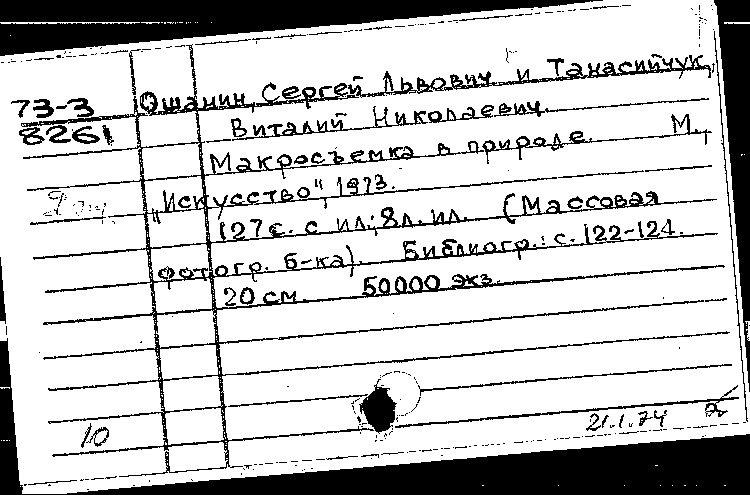 73-3
8261
Ошанин, Сергей Львович и Танасийчук,
Виталий Николаевич.
Макросъемка в природе. М.,
"Искусство", 1973.
127 с. с ил.; 8 л. ил. (Массовая
фотогр. б-ка). Библиогр.: с. 122-124.
20 см. 50000 экз.
10
21.1.74